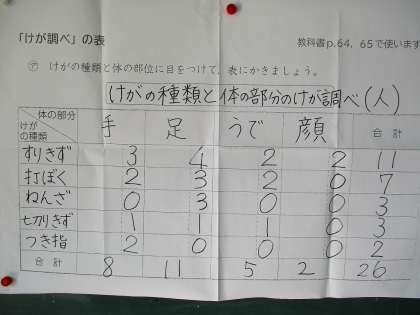 「けが調べ」の表
教科書p.64, 65で使います
㋐ けがの種類と体の部位に目をつけて、表にかきましょう。
けがの種類と体の部分のけが調べ(人)
体の部分
けがの種類
手 足 うで 顔 合計
すりきず 3 4 2 2 11
打ぼく 2 3 2 0 7
ねんざ 0 3 0 0 3
切りきず 1 1 1 0 3
つき指 2 0 0 0 2
合計 8 11 5 2 26